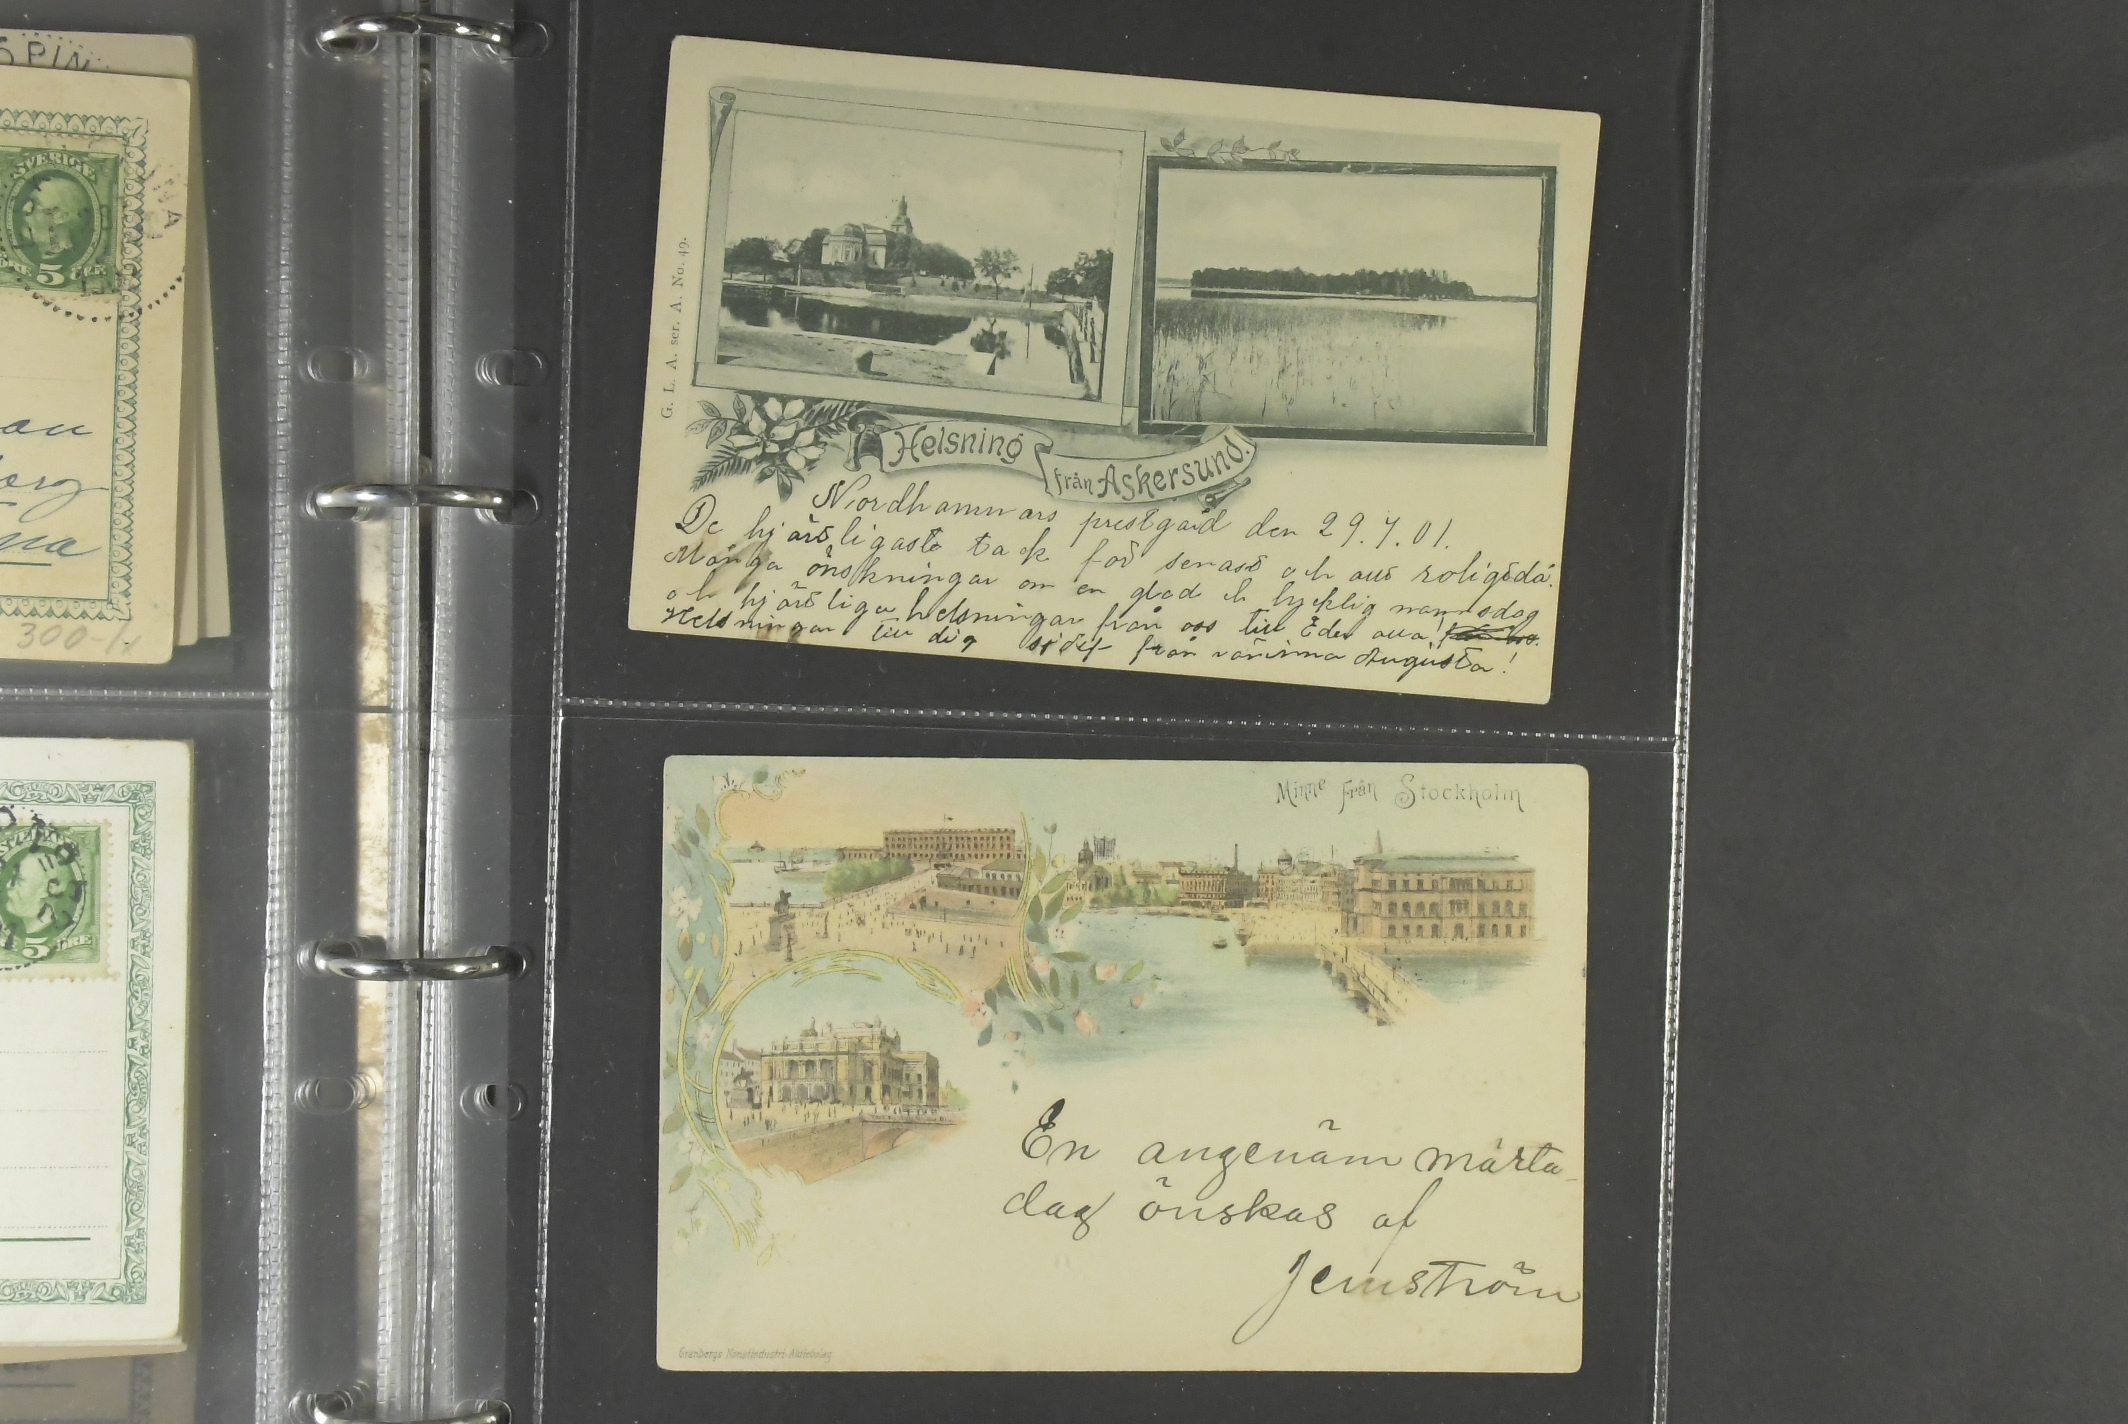 SPIN
SVERIGE
5
ÖRE
300-/.
5
ÖRE
G. L. A. ser. A. No. 49.
Helsning
från Askersund.
Nordhammars prestgård den 29.7.01.
De hjärtligaste tack för senast och allt roligt då.
Många önskningar om en glad & lycklig namnsdag
och hjärtliga helsningar från oss till Eder alla!
Helsningar till dig från Augusta!
Minne från Stockholm
En angenäm märta-
dag önskas af
Jernström
Granbergs Konstindustri-Aktiebolag